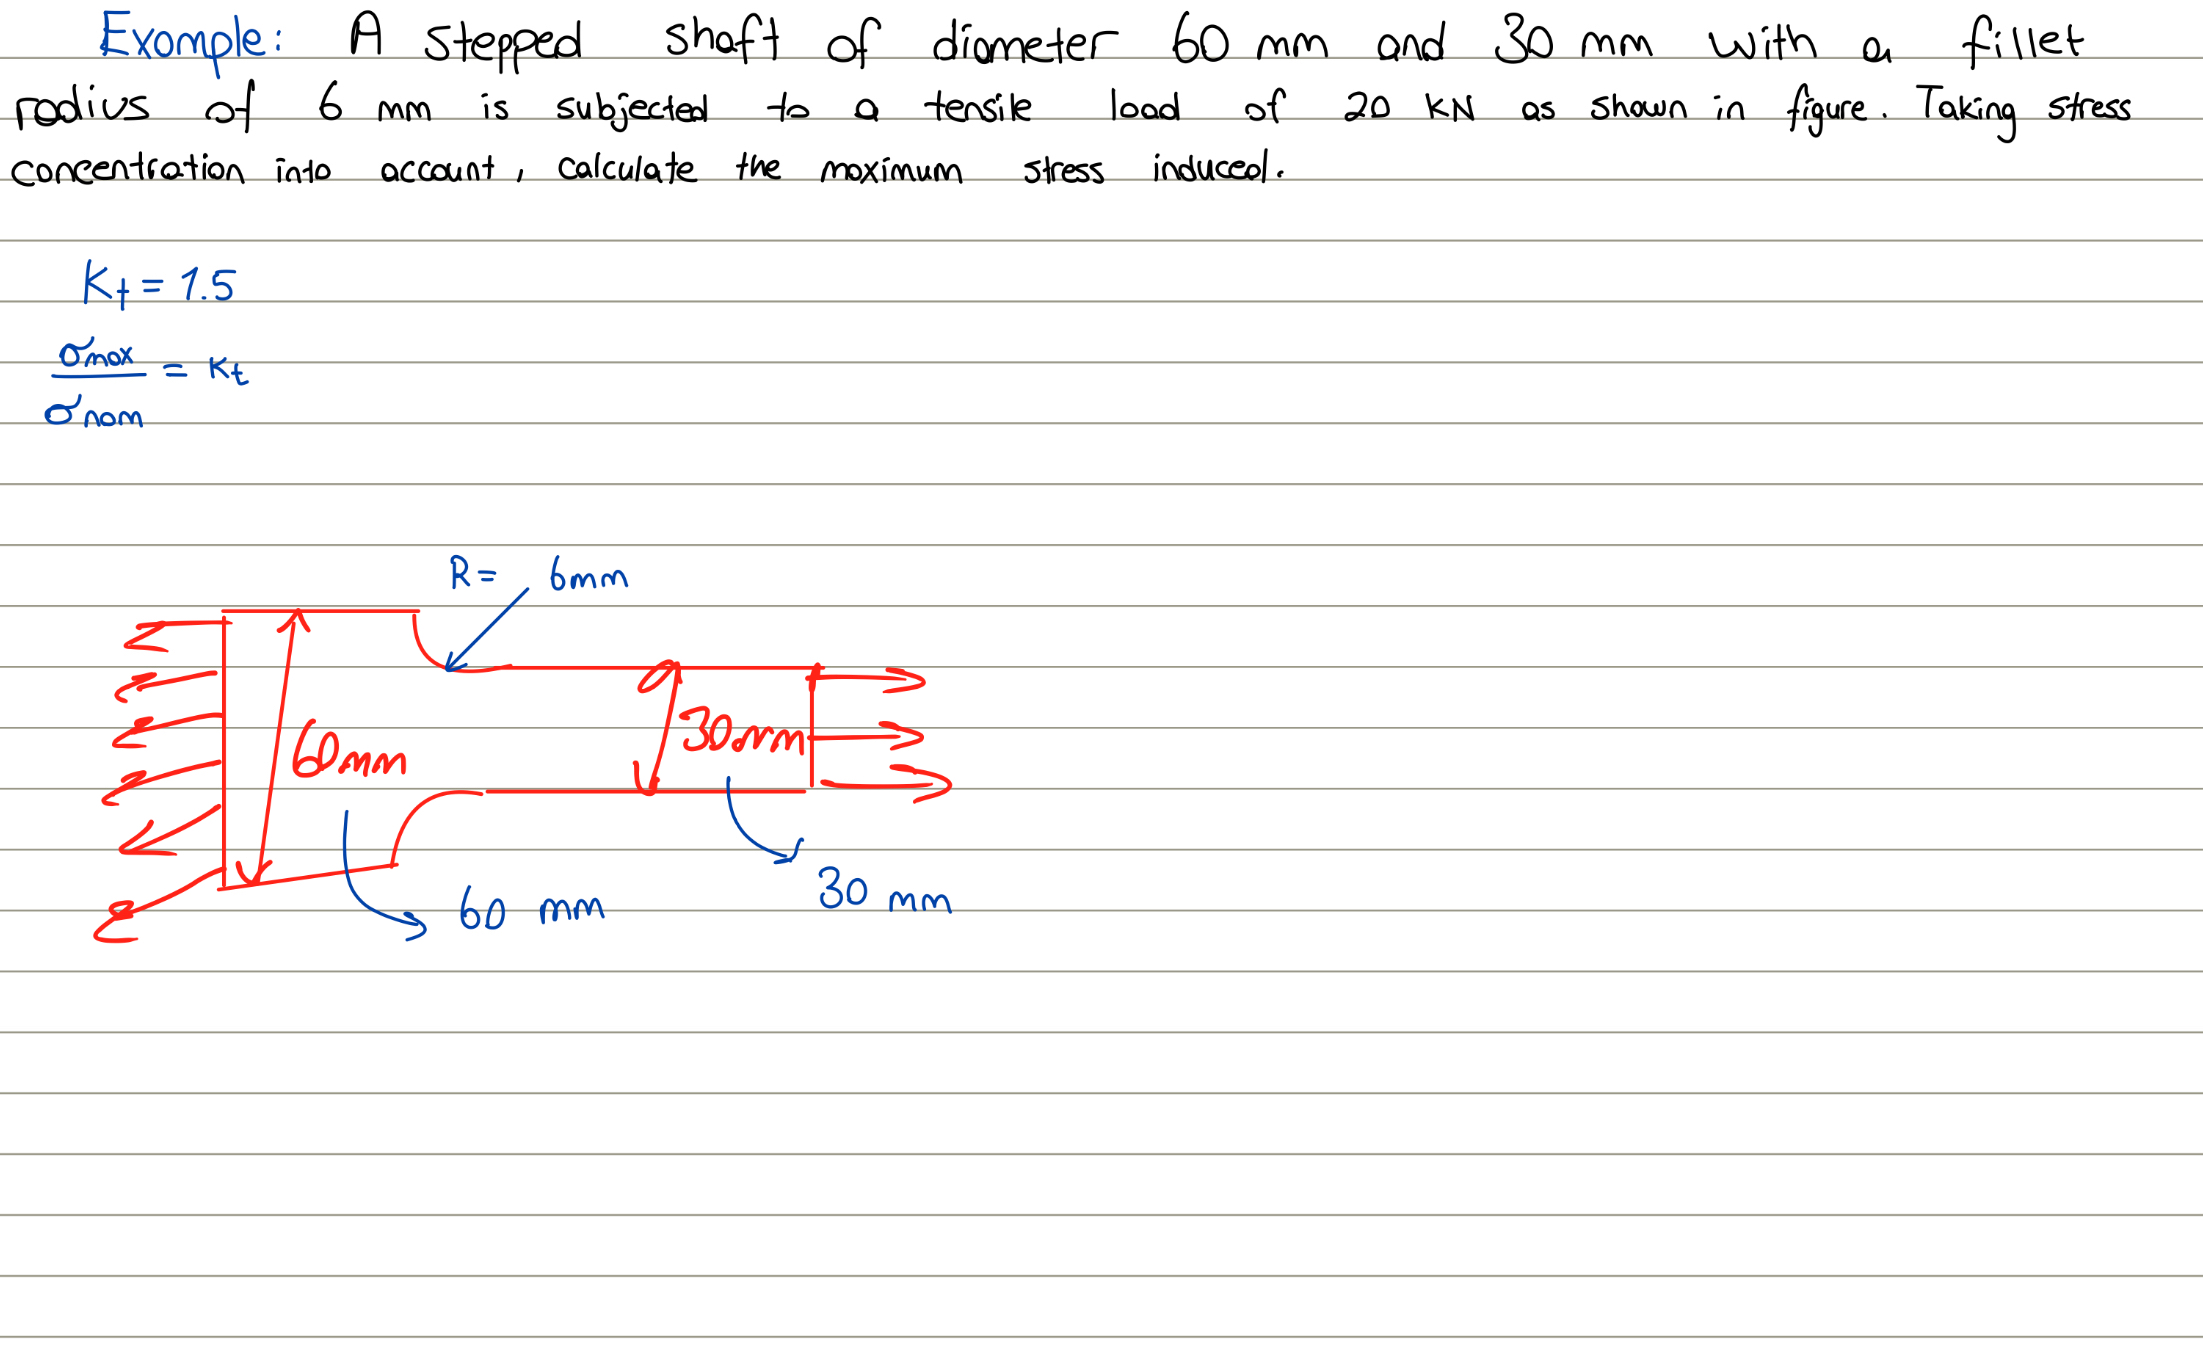 Example: A stepped shaft of diameter 60 mm and 30 mm with a fillet
radius of 6 mm is subjected to a tensile load of 20 kN as shown in figure. Taking stress
concentration into account, calculate the maximum stress induced.
Kt = 1.5
σmax
= Kt
σnom
R = 6mm
60mm
30mm
60 mm
30 mm